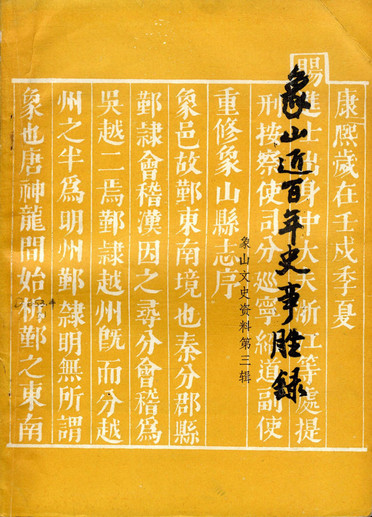 康熙歲在壬戌季夏
賜進士出身中大夫浙江等處提
刑按察使司分巡寧紹道副使
象山近百年史事胜録
象山文史资料第三辑
重修象山縣志序
象邑故鄞東南境也秦分郡縣
鄞隸會稽漢因之尋分會稽爲
吳越二焉鄞隸越州旣而分越
州之半爲明州鄞隸明無所謂
象也唐神龍間始析鄞之東南